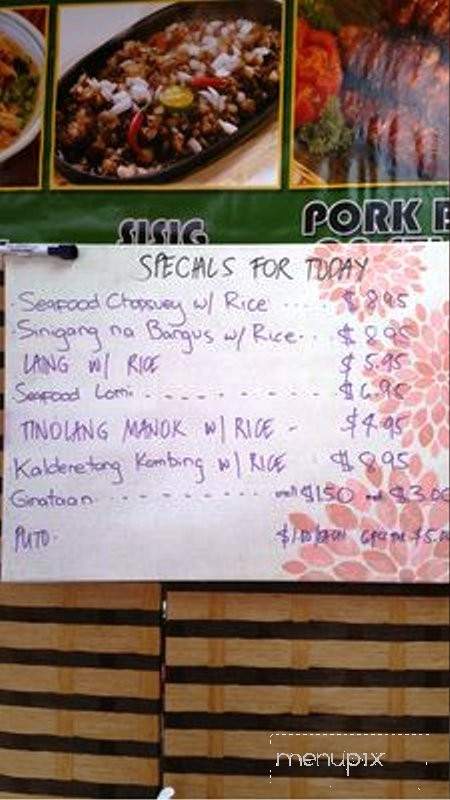 SISIG
PORK B
SPECIALS FOR TODAY
Seafood Chopsuey w/ Rice .... $8.95
Sinigang na Bangus w/ Rice... $8.95
LAING W/ RICE $5.95
Seafood Lomi - - - - - - - - $6.95
TINOLANG MANOK W/ RICE - $4.95
Kalderetang Kambing w/ RICE $8.95
Ginataan - - - - - - - - small $1.50 $3.00
PUTO- $1.00/each 6pcs for $5.00
menupix